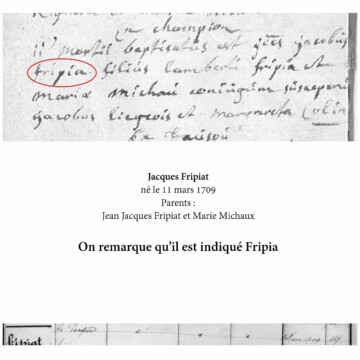 en champion
11ª martii baptisatus est jões jacobus
fripia filius lamberti fripia et
mariæ michau coniugum susceperunt
jacobus liegeois et margareta Colin
Jacques Fripiat
né le 11 mars 1709
Parents :
Jean Jacques Fripiat et Marie Michaux
On remarque qu'il est indiqué Fripia
fripiat